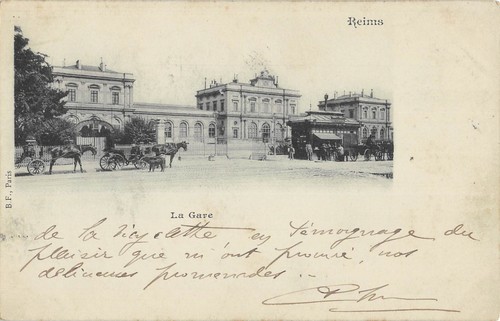 Reims
B.F., Paris
La Gare
de la bicyclette en témoignage du
plaisir que m'ont procuré, nos
délicieuses promenades...